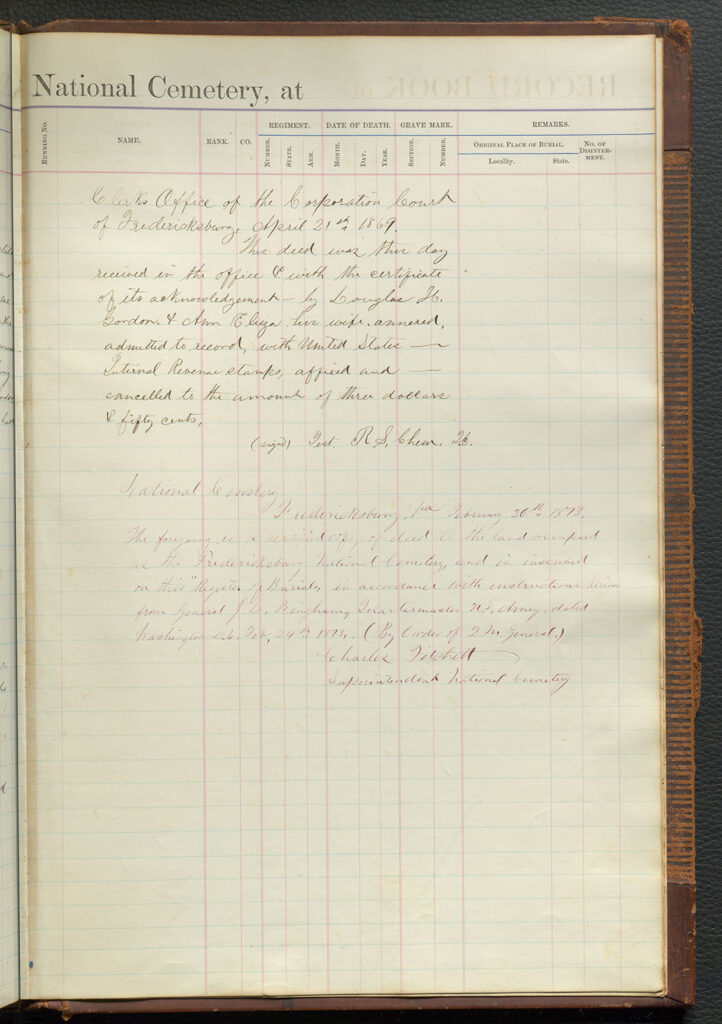 National Cemetery, at
RUNNING No.
NAME.
RANK.
CO.
REGIMENT.
DATE OF DEATH.
GRAVE MARK.
REMARKS.
NUMBER.
STATE.
ARM.
MONTH.
DAY.
YEAR.
SECTION.
NUMBER.
ORIGINAL PLACE OF BURIAL.
No. OF DISINTER-MENT.
Locality.
State.
Clerks Office of the Corporation Court
of Fredericksburg, April 21st 1869.
This deed was this day
received in the office & with the certificate
of its acknowledgement - by Douglas H.
Gordon & Ann Eliza his wife annexed,
admitted to record, with United States
Internal Revenue stamps, affixed and
cancelled to the amount of three dollars
& fifty cents,
(signed) Test R S. Chew.
National Cemetery
Fredericksburg, Va February 26th 1873.
The foregoing is a certified copy of deed to the land occupied
as the Fredericksburg National Cemetery, and is inscribed
on this "Register of Burials, in accordance with instructions
from General J. D. Bingham, Quartermaster U.S. Army dated
Washington D.C. Feb. 24th 1873. (By Order of General.)
Charles Fitchett
Superintendent National Cemetery